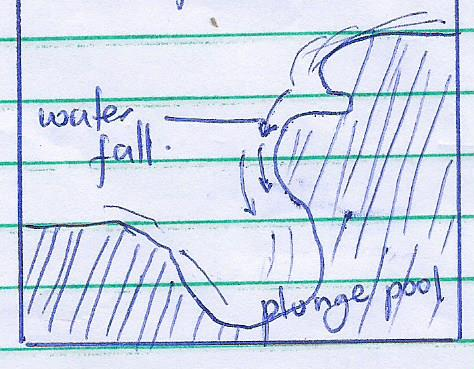 water
fall.
plonge pool